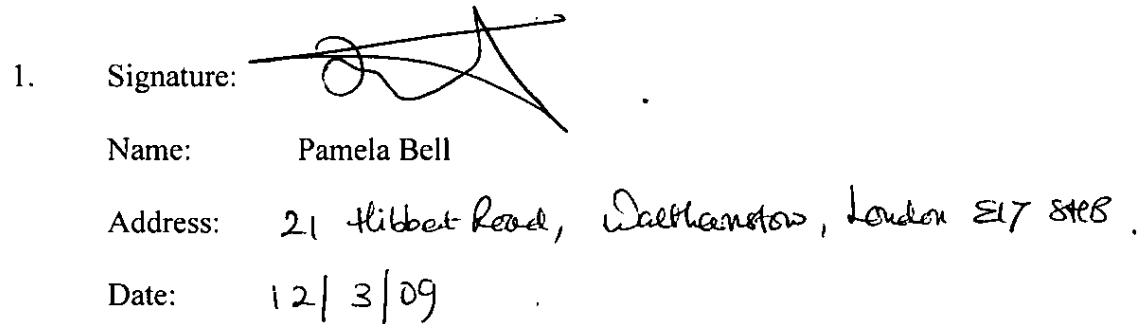 1. Signature:
Name: Pamela Bell
Address: 21 Hibbet Road, Walthamstow, London E17 8HB.
Date: 12/3/09